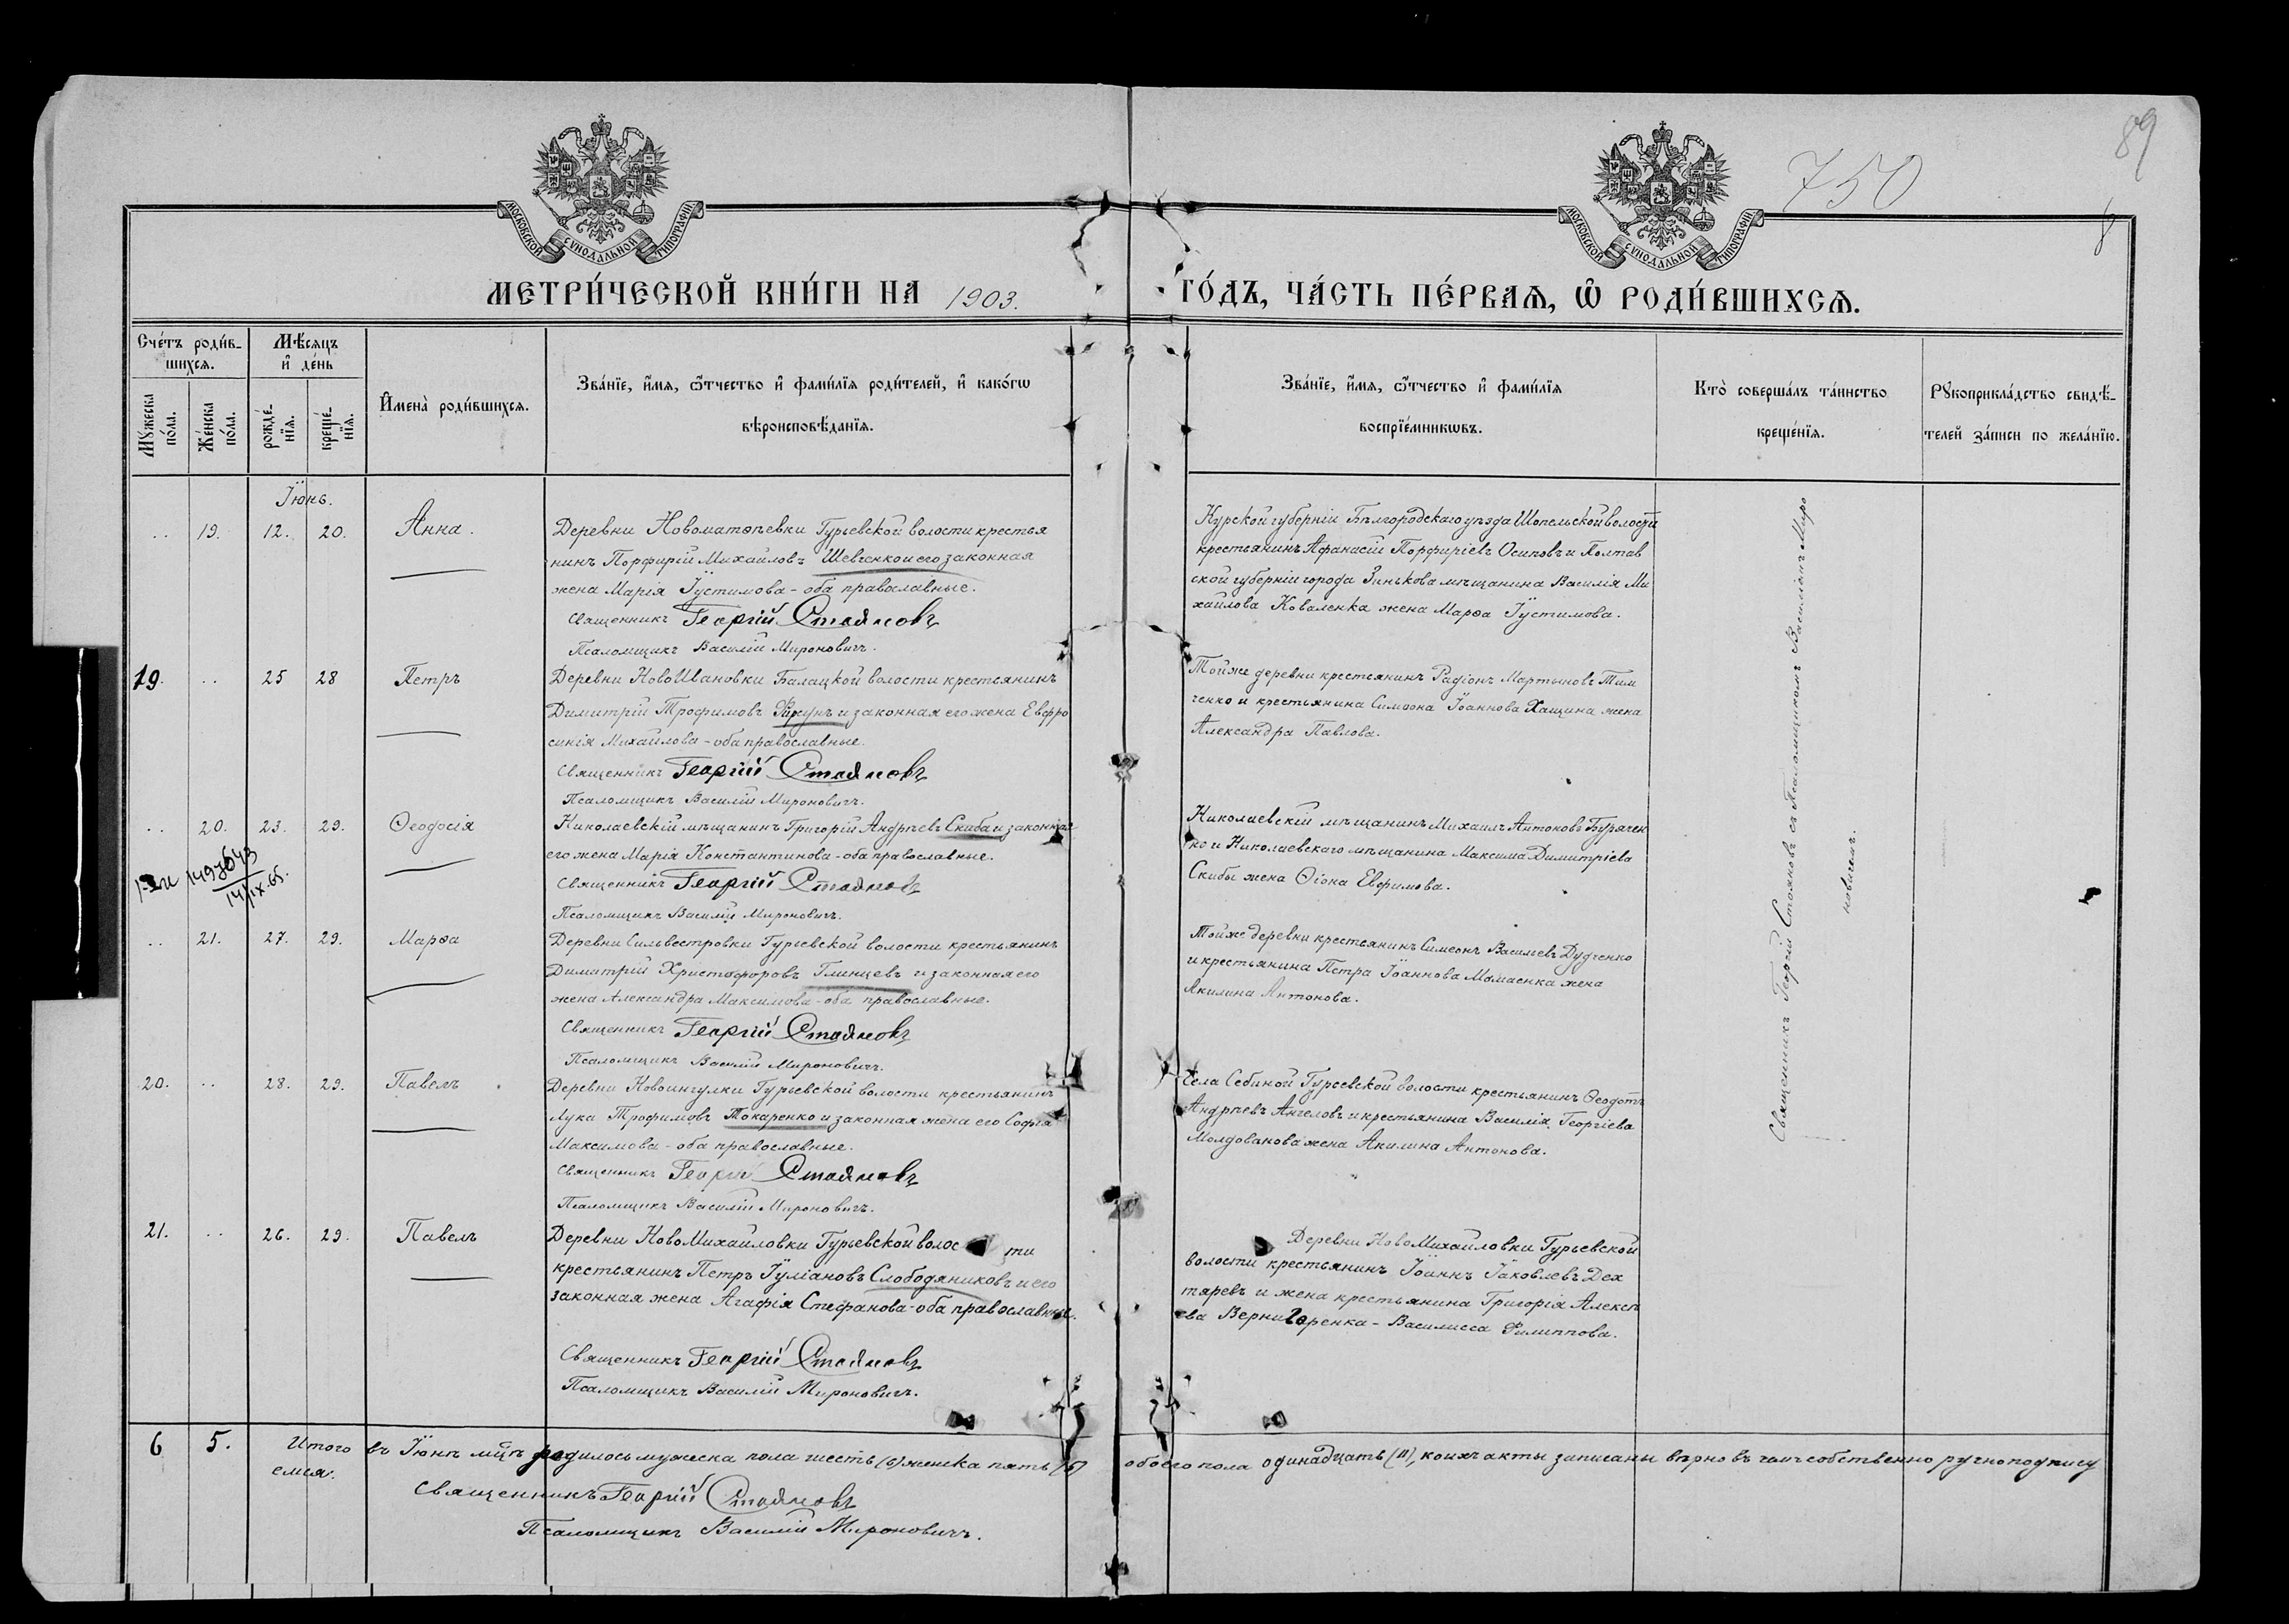 89
750
8
МОСКОВСКОЙ СѴНОДАЛЬНОЙ ТИПОГРАФІИ
МОСКОВСКОЙ СѴНОДАЛЬНОЙ ТИПОГРАФІИ
МЕТРИ́ЧЕСКОЙ КНИ́ГИ НА 1903. ГО́ДЪ, ЧА́СТЬ ПЕ́РВАѦ, Ѽ РОДИ́ВШИХСѦ.
Сче́тъ роди́в-
шихсѧ.
Мꙋ́жеска
по́ла.
Же́нска
по́ла.
Мѣ́сѧцъ
и҆ де́нь
рожде́-
нїѧ.
креще́-
нїѧ.
И҆мена̀ роди́вшихсѧ.
Зва́нїе, и҆́мѧ, ѻ҆́тчество и҆ фами́лїѧ роди́телей, и҆ како́гѡ
вѣроисповѣ́данїѧ.
Зва́нїе, и҆́мѧ, ѻ҆́тчество и҆ фами́лїѧ
воспрїе́мникѡвъ.
Кто̀ соверша́лъ та́инство
креще́нїѧ.
Рꙋкоприкла́дство свидѣ́-
телей за́писи по жела́нїю.
Іюнь.
.. 19. 12. 20. Анна.
Деревни Новоматвѣевки Гурьевской волости крестья
нинъ Порфирій Михайловъ Шевченко и его законная
жена Марія Іустимова - оба православные.
Священникъ Георгій Стояновъ
Псаломщикъ Василій Мироновичъ.
Курской губерніи Бѣлгородскаго уѣзда Шопельской волости
крестьянинъ Афанасій Порфиріевъ Осиповъ и Полтав
ской губерніи города Зинькова мѣщанина Василія Ми
хайлова Коваленка жена Марѳа Іустимова.
19. .. 25 28 Петръ
Деревни НовоИвановки Балацкой волости крестьянинъ
Димитрій Трофимовъ и законная его жена Евфро
синія Михайлова - оба православные.
Священникъ Георгій Стояновъ
Псаломщикъ Василій Мироновичъ.
Той же деревни крестьянинъ Радіонъ Мартыновъ Тим
ченко и крестьянина Симеона Іоаннова Хащина жена
Александра Павлова.
.. 20. 23. 29. Ѳеодосія
Николаевскій мѣщанинъ Григорій Андреевъ Скиба и законная
его жена Марія Константинова - оба православные.
Священникъ Георгій Стояновъ
Псаломщикъ Василій Мироновичъ.
Николаевскій мѣщанинъ Михаилъ Антоновъ Бурячен
ко и Николаевскаго мѣщанина Максима Димитріева
Скибы жена Ѳіона Евфимова.
1497643
14/IX.65.
.. 21. 27. 29. Марѳа
Деревни Сильвестровки Гурьевской волости крестьянинъ
Димитрій Христофоровъ Глинцевъ и законная его
жена Александра Максимова - оба православные.
Священникъ Георгій Стояновъ
Псаломщикъ Василій Мироновичъ.
Той же деревни крестьянинъ Симеонъ Васильевъ Дудченко
и крестьянина Петра Іоаннова Момаенка жена
Акилина Антонова.
20. .. 28. 29. Павелъ
Деревни Новоингулки Гурьевской волости крестьянинъ
Лука Трофимовъ Токаренко и законная жена его Софія
Максимова - оба православные.
Священникъ Георгій Стояновъ
Псаломщикъ Василій Мироновичъ.
Села Себиной Гурьевской волости крестьянинъ Ѳеодотъ
Андреевъ Ангеловъ и крестьянина Василія Георгіева
Молдованова жена Акилина Антонова.
21. .. 26. 29. Павелъ
Деревни НовоМихайловки Гурьевской волос ти
крестьянинъ Петръ Іуліановъ Слободяниковъ и его
законная жена Агафія Стефанова - оба православные.
Священникъ Георгій Стояновъ
Псаломщикъ Василій Мироновичъ.
Деревни НовоМихайловки Гурьевской
волости крестьянинъ Іоаннъ Іаковлевъ Дех
тяревъ и жена крестьянина Григорія Алексѣ
ева Вернигоренка - Василисса Филиппова.
Священникъ Георгій Стояновъ съ Псаломщикомъ Василіемъ Миро
новичемъ.
6 5. Итого въ Іюнѣ м-цѣ родилось мужеска пола шесть (6) женска пять (5) обоего пола одинадцать (11), коихъ акты записаны вѣрно въ чемъ собственно ручно подпису
емся.
Священникъ Георгій Стояновъ
Псаломщикъ Василій Мироновичъ.